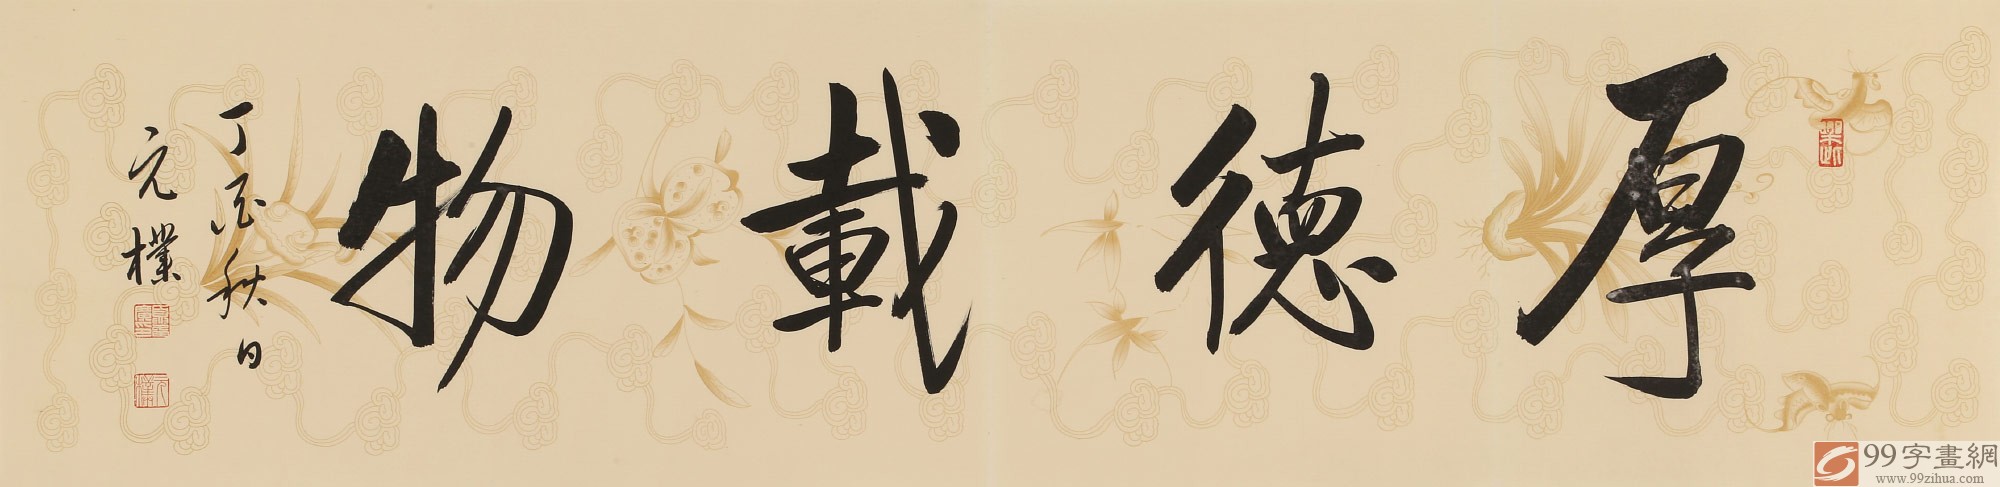 厚德載物
丁酉秋日
元樸
99字畫網
www.99zihua.com